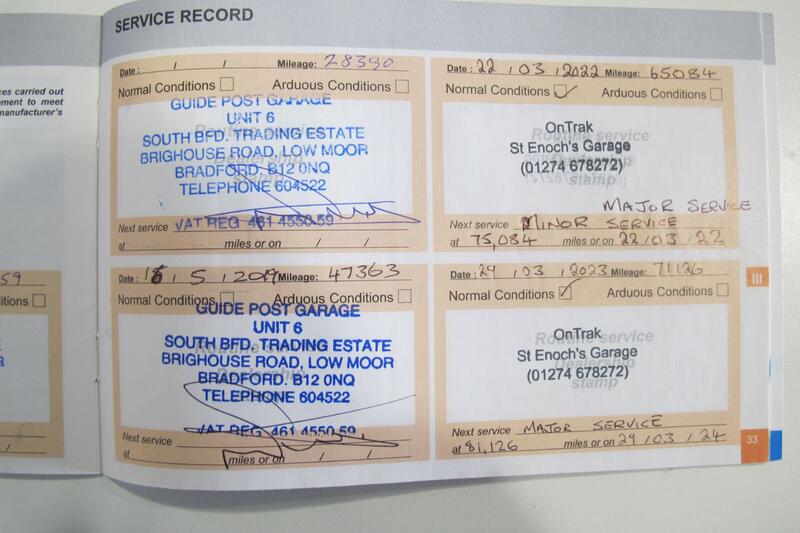 ces carried out
ement to meet
manufacturer's
59
itions
SERVICE RECORD
Date : / / Mileage: 28390
Normal Conditions Arduous Conditions
GUIDE POST GARAGE
UNIT 6
SOUTH BFD. TRADING ESTATE
BRIGHOUSE ROAD, LOW MOOR
BRADFORD. B12 0NQ
TELEPHONE 604522
Next service VAT REG 461 4550 59
at miles or on / /
Date : 22 / 03 / 2022 Mileage: 65084
Normal Conditions ✓ Arduous Conditions
Routine service
OnTrak
St Enoch's Garage
(01274 678272)
stamp
MAJOR SERVICE
Next service MINOR SERVICE
at 75,084 miles or on 22 / 03 / 22
5 / 2019 Mileage: 47363
Normal Conditions Arduous Conditions
GUIDE POST GARAGE
UNIT 6
SOUTH BFD. TRADING ESTATE
BRIGHOUSE ROAD, LOW MOOR
BRADFORD. B12 0NQ
TELEPHONE 604522
VAT REG 461 4550 59
Next service
at miles or on / /
Date : 29 / 03 / 2023 Mileage: 71126
Normal Conditions ✓ Arduous Conditions
Routine service
OnTrak
Dealership
St Enoch's Garage
(01274 678272)
stamp
Next service MAJOR SERVICE
at 81,126 miles or on 29 / 03 / 24
III
33